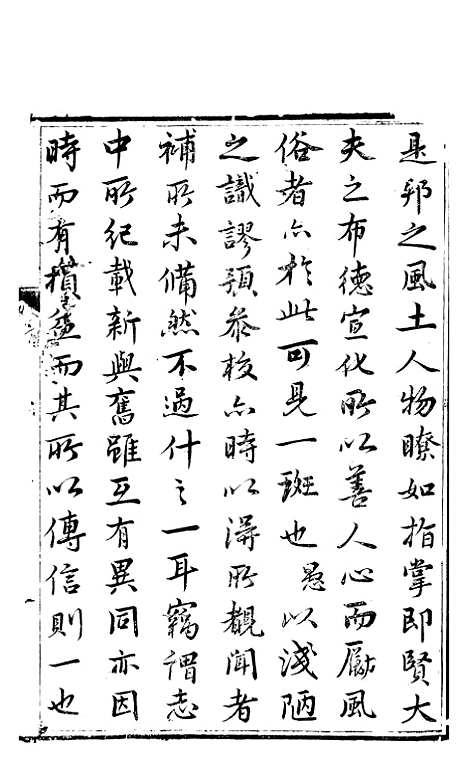 是邦之風土人物瞭如指掌即賢大
夫之布德宣化所以善人心而勵風
俗者亦於此可見一斑也愚以淺陋
之識謬預叅校亦時以淂所覩聞者
補所未備然不過什之一耳竊謂志
中所紀載新與舊雖互有異同亦因
時而有損益而其所以傳信則一也